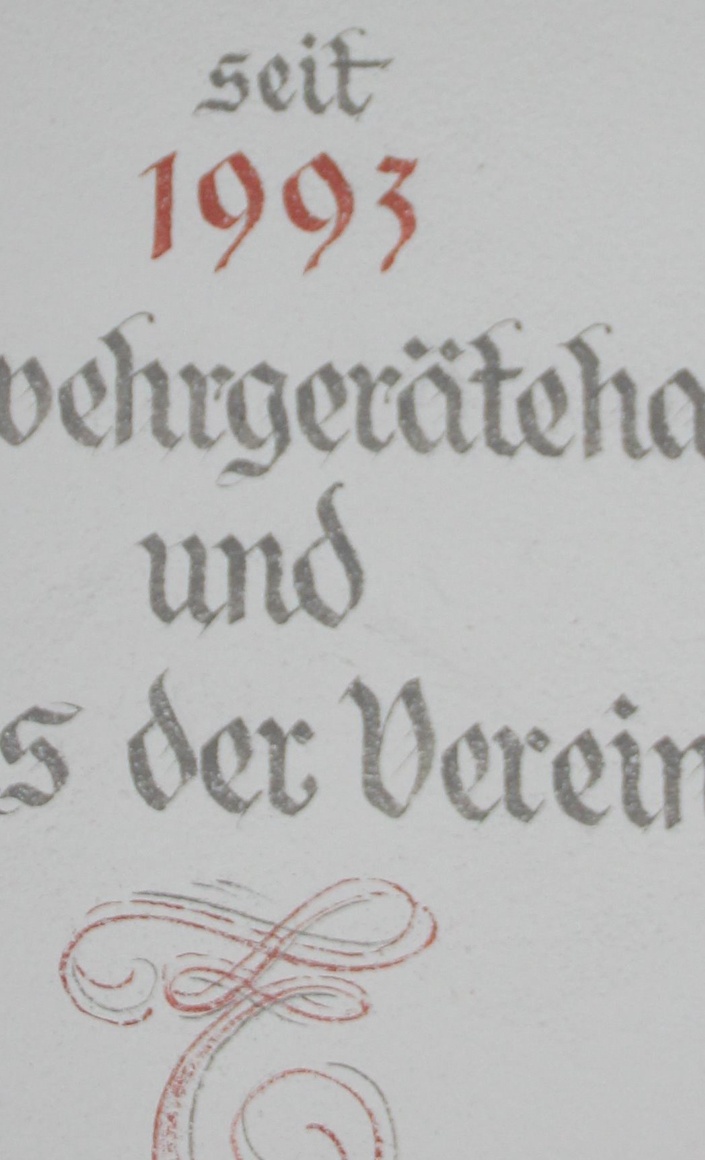 seit
1993
wehrgeräteha
und
s der Verein